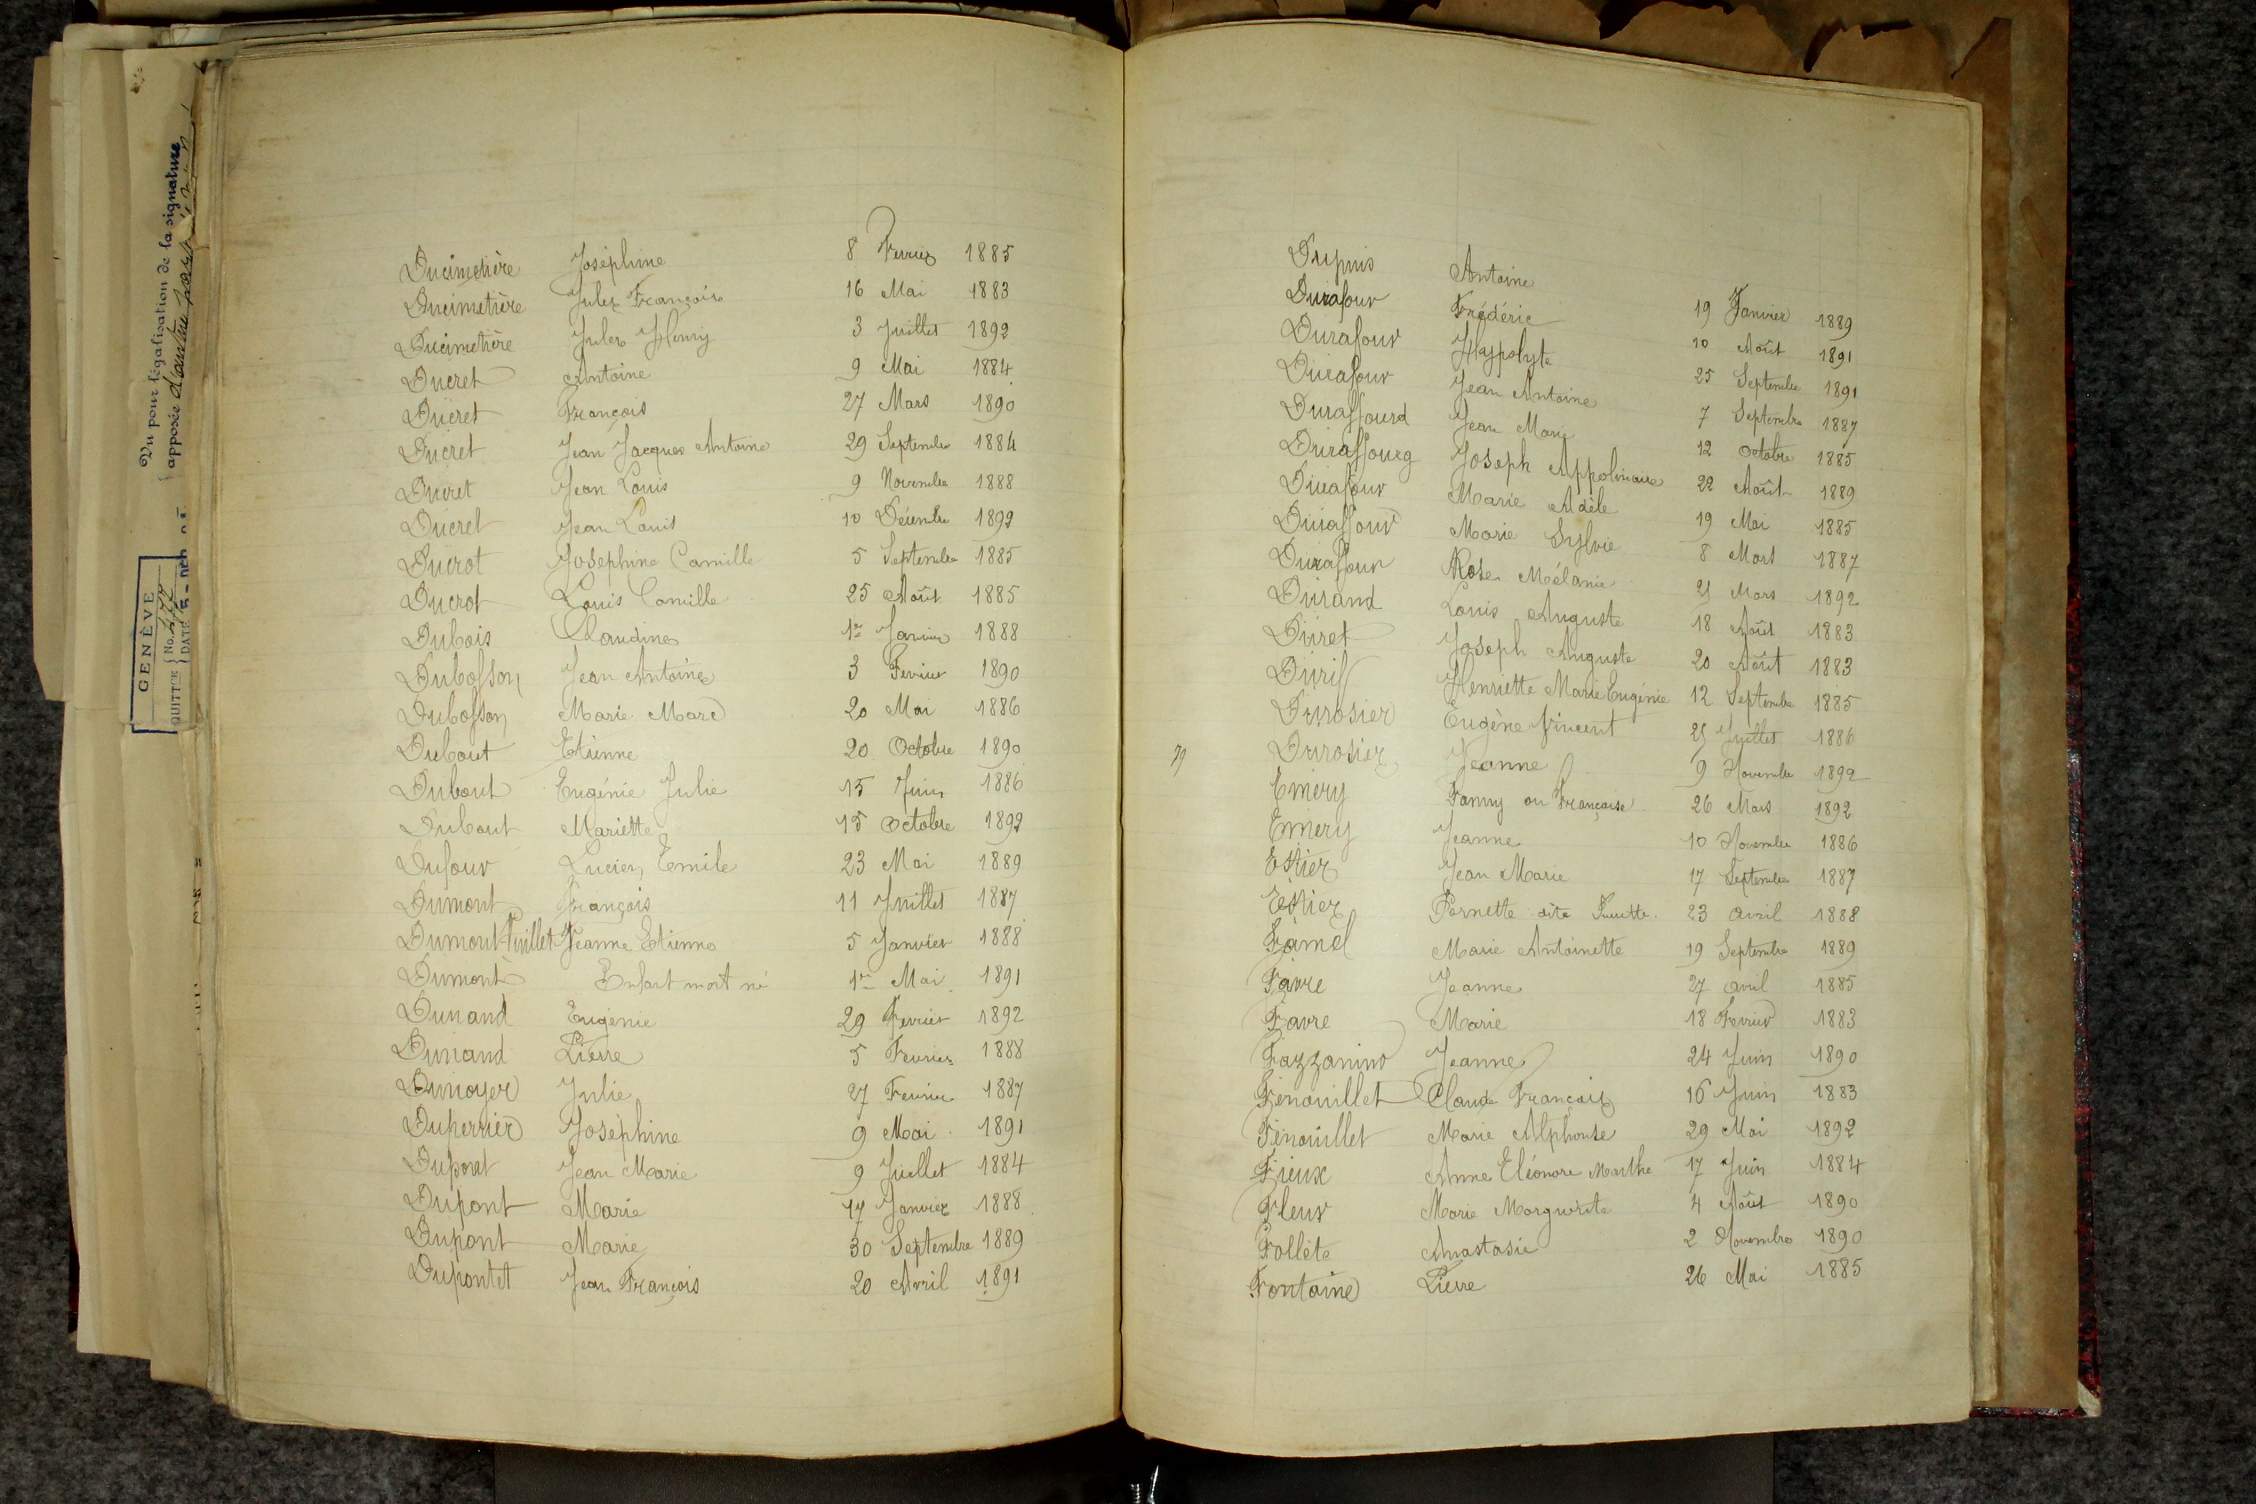 Vu pour légalisation de la signature
apposée d'autre part
GENÈVE
QUITTCE No. 477
DATE
Ducimetière Joséphine 8 Fevrier 1885
Ducimetière Jules François 16 Mai 1883
Ducimetière Jules Henry 3 Juillet 1892
Ducret Antoine 9 Mai 1884
Ducret François 27 Mars 1890
Ducret Jean Jacques Antoine 29 Septembre 1884
Ducret Jean Louis 9 Novembre 1888
Ducret Jean Louis 10 Décembre 1892
Ducrot Joséphine Camille 5 Septembre 1885
Ducrot Louis Camille 25 Août 1885
Dubois Claudine 1er Janvier 1888
Dubosson Jean Antoine 3 Fevrier 1890
Dubosson Marie Marc 20 Mai 1886
Dubout Etienne 20 Octobre 1890
Dubout Eugénie Julie 15 Juin 1886
Dubout Mariette 15 Octobre 1892
Dufour Lucien Emile 23 Mai 1889
Dumont François 11 Juillet 1887
Dumont Pinllet Jeanne Etienne 5 Janvier 1888
Dumont Enfant mort né 1er Mai 1891
Dunand Eugénie 29 Fevrier 1892
Dunand Pierre 5 Fevrier 1888
Dunoyer Julie 27 Fevrier 1887
Duperrier Joséphine 9 Mai 1891
Duport Jean Marie 9 Juillet 1884
Dupont Marie 17 Janvier 1888
Dupont Marie 30 Septembre 1889
Dupontet Jean François 20 Avril 1891
Dupuis Antoine 19 Janvier 1889
Durafour Frédéric 10 Août 1891
Durafour Hyppolyte 25 Septembre 1891
Durafour Jean Antoine 7 Septembre 1887
Duraffourd Jean Marie 12 Octobre 1885
Duraffourg Joseph Appolinaire 22 Août 1889
Durafour Marie Adèle 19 Mai 1885
Duraffour Marie Sylvie 8 Mars 1887
Durafour Rose Mélanie 21 Mars 1892
Durand Louis Auguste 18 Août 1883
Duret Joseph Auguste 20 Août 1883
Durif Henriette Marie Eugénie 12 Septembre 1885
Durosier Eugène Vincent 25 Juillet 1886
Durosier Jeanne 9 Novembre 1892
Emery Fanny ou Françoise 26 Mars 1892
Emery Jeanne 10 Novembre 1886
Estier Jean Marie 17 Septembre 1887
Estier Pernette dite Fanette 23 avril 1888
Famel Marie Antoinette 19 Septembre 1889
Favre Jeanne 27 avril 1885
Favre Marie 18 Fevrier 1883
Fazzanino Jeanne 24 Juin 1890
Fenouillet Claude François 16 Juin 1883
Fenouillet Marie Alphonse 29 Mai 1892
Fieux Anne Eléonore Marthe 17 Juin 1884
Fleur Marie Marguerite 4 Août 1890
Follete Anastasie 2 Novembre 1890
Fontaine Pierre 26 Mai 1885